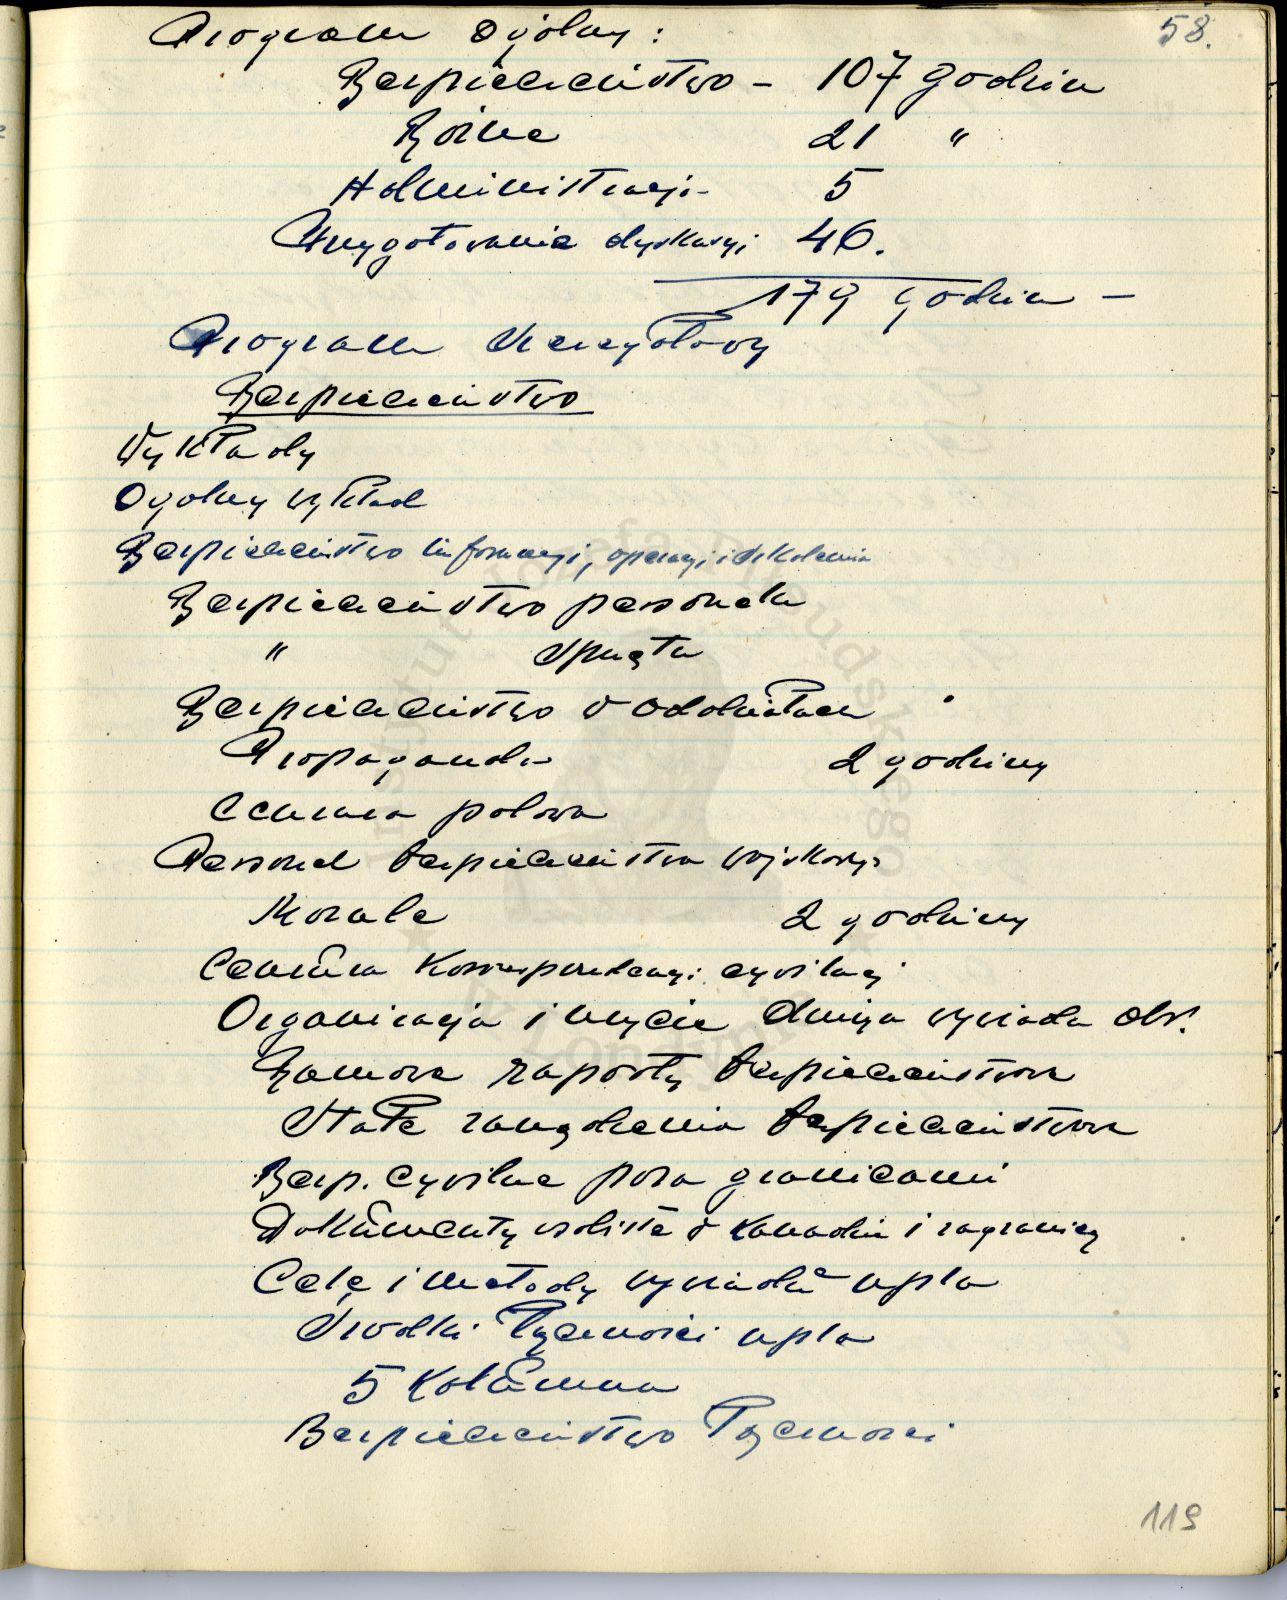 58.
Program Ogólny:
Bezpieczeństwo - 107 godzin
Różne 21 "
Administracja - 5
Przygotowanie dyskusyj 46.
179 godzin -
Program szczegółowy
Bezpieczeństwo
Wykłady
Ogólny wykład
Bezpieczeństwo informacyj, operacyj i szkolenia
Bezpieczeństwo personelu
" sprzętu
Bezpieczeństwo w oddziałach
Propaganda 2 godziny
Cenzura polowa
Personel bezpieczeństwa wojskowy
Morale 2 godziny
Cenzura korrespondencyi cywilnej
Organizacja i użycie wywiadu
raporty bezpieczeństwa
Stałe zarządzenia bezpieczeństwa
Bezp. cywilne poza granicami
Dokumenty osobiste w Kanadzie i zagranicą
Cele i metody wywiadu npla
Środki łączności npla
5 Kolumna
Bezpieczeństwo łączności
119
Instytut Józefa Piłsudskiego
w Londynie